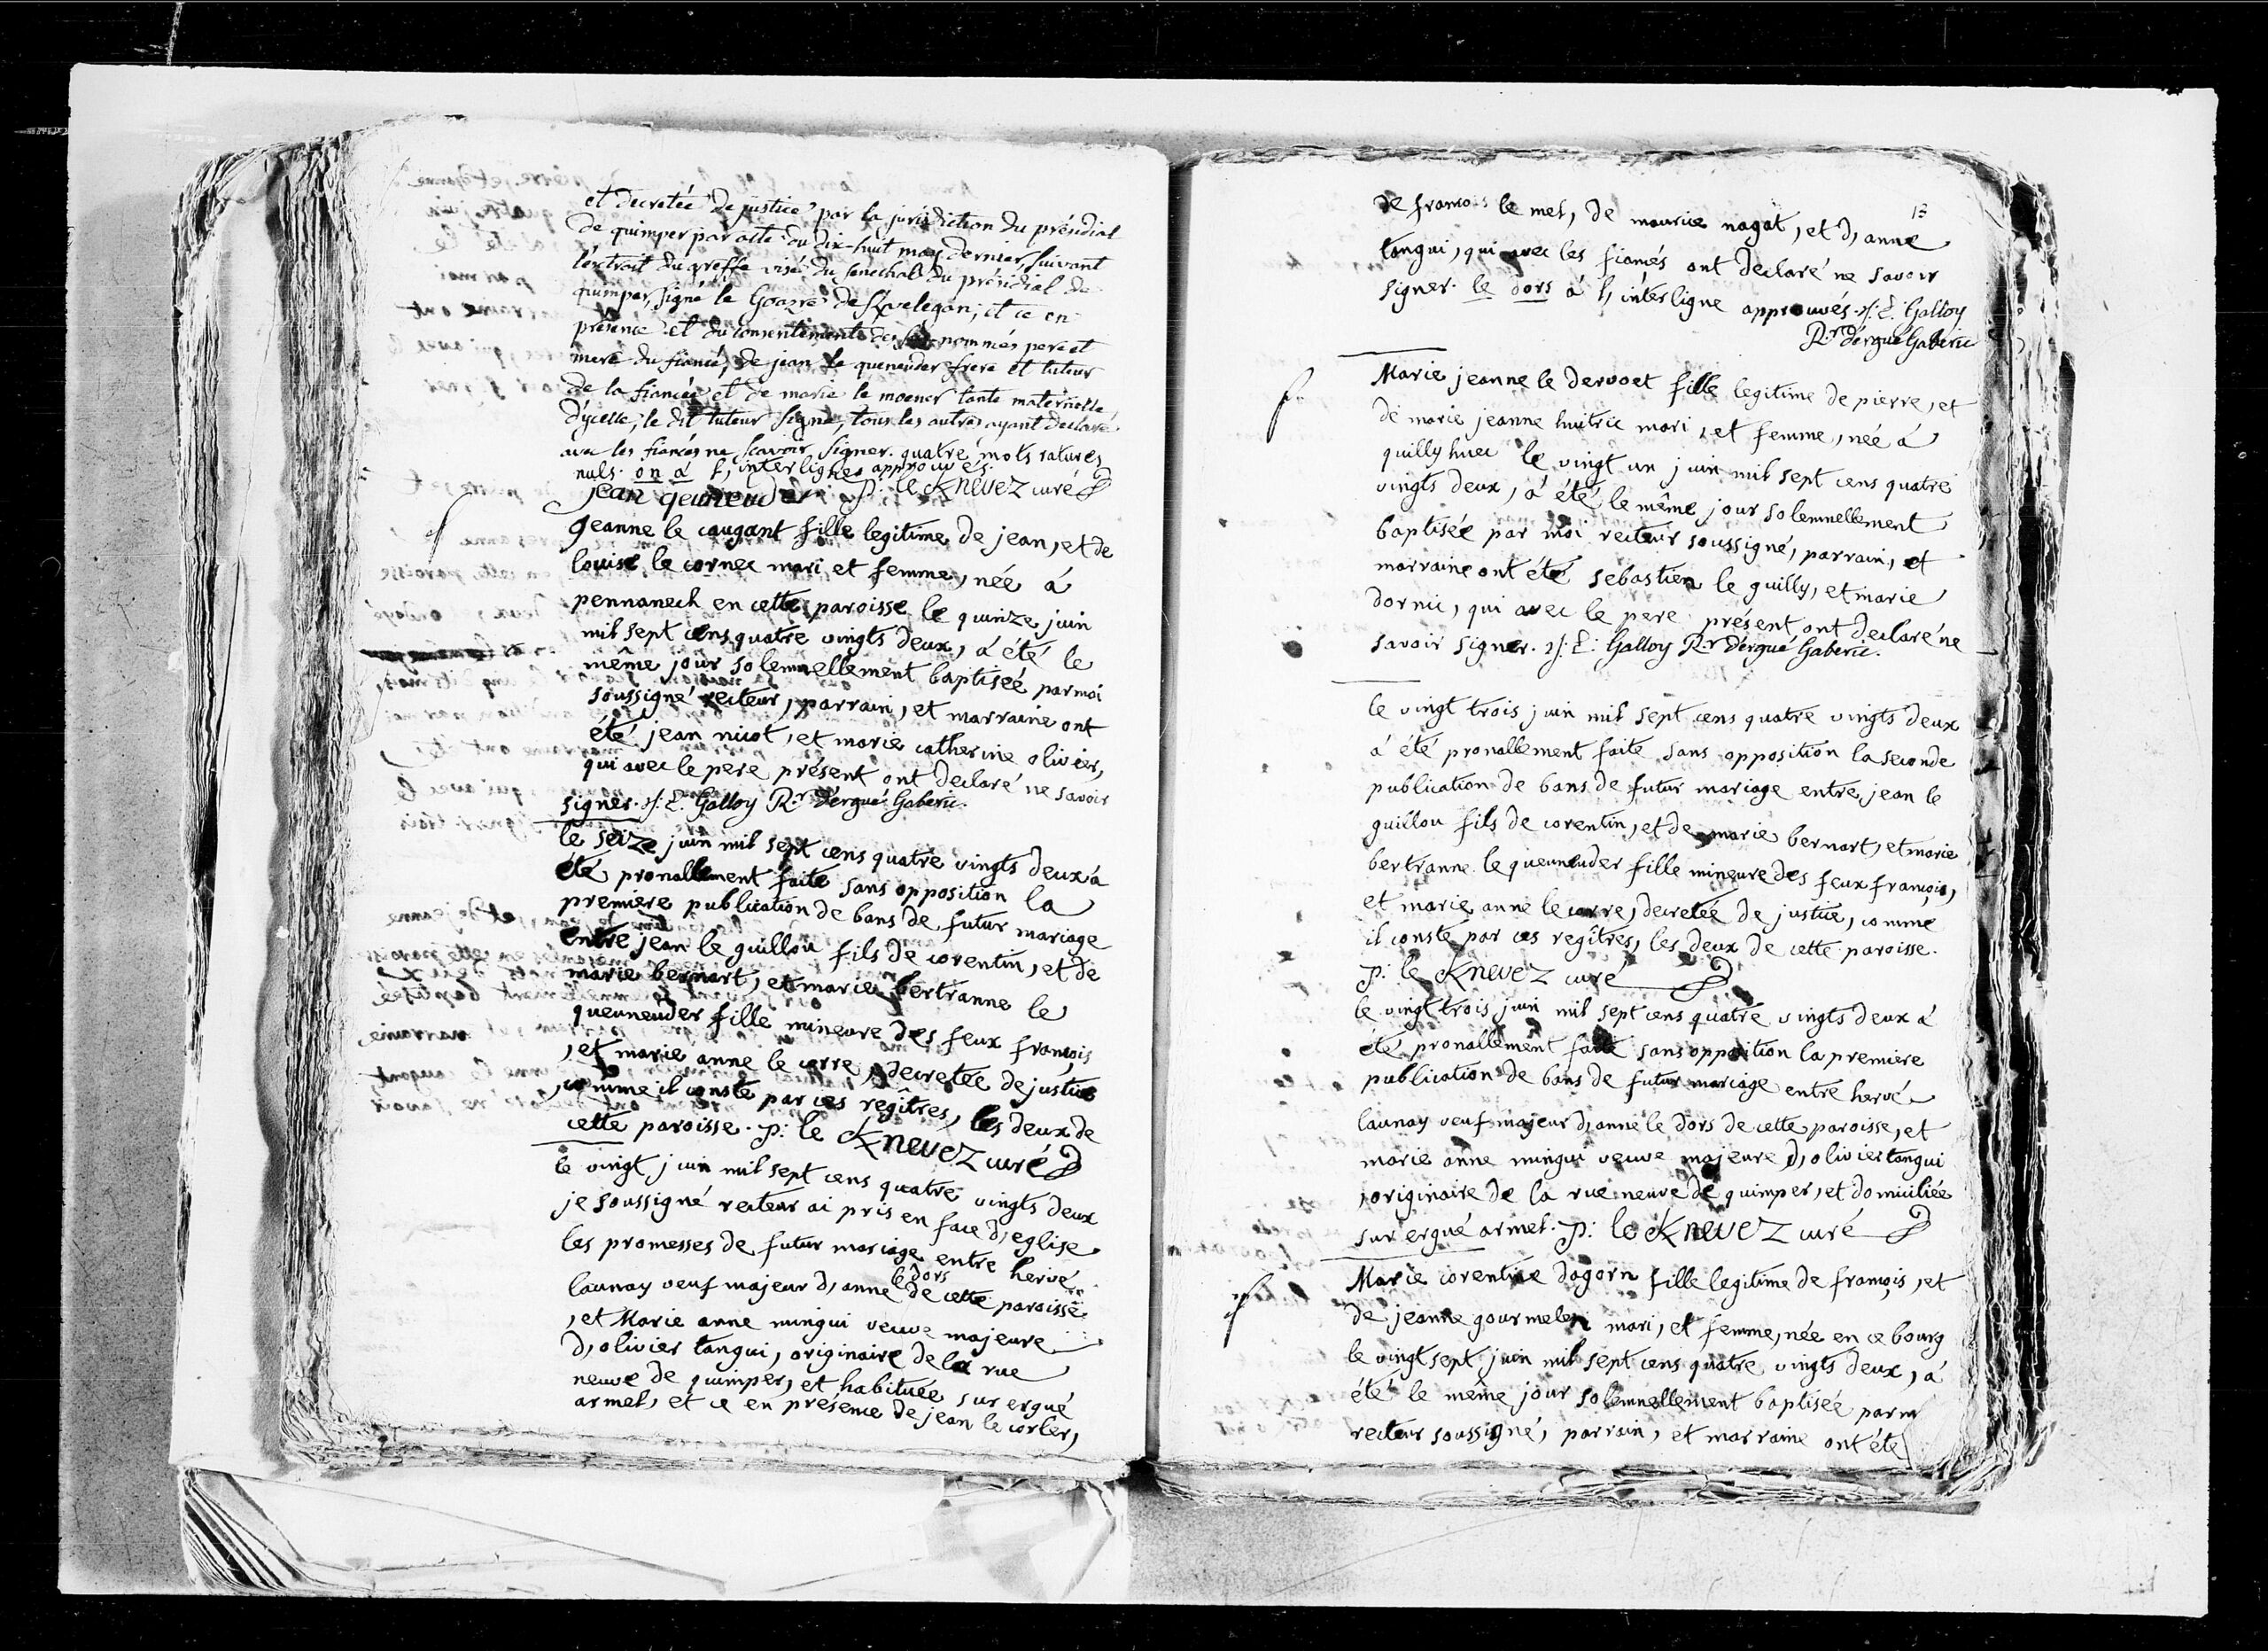 et decretée de justice par la jurisdiction du présidial
de quimper par acte du dix-huit may dernier, suivant
l'extrait du greffe visé du senechal du présidial de
quimper, signé le Goazre de Kvelegan; et ce en
présence et du consentement des nommés pere et
mere du fiancé, de jean le queneuder frere et tuteur
de la fiancée et de marie le moener tante maternelle
d'ycelle, le dit tuteur signe, tous les autres ayant declaré
avec les fiancés ne scavoir signer. quatre mots raturés
nuls. on à l, interligne approuvés.
jean qeuneuder p: le Knevez curé
jeanne le caugant fille legitime de jean, et de
louise le cornec mari et femme, née à
pennanech en cette paroisse le quinze juin
mil sept cens quatre vingts deux, a été le
même jour solemnellement baptisée par moi
soussigné recteur, parrain, et marraine ont
été jean nicot, et marie catherine olivier,
qui avec le pere présent ont declaré ne savoir
signer. Galloy Rr. d'ergué Gaberic.
le seize juin mil sept cens quatre vingts deux a
été pronallement faite sans opposition la
premiere publication de bans de futur mariage
entre jean le guillou fils de corentin, et de
marie bernart, et marie bertranne le
queuneuder fille mineure des feux françois
, et marie anne le corre, decretée de justice
, comme il conste par ces regîtres, les deux de
cette paroisse. p: le Knevez curé
le vingt juin mil sept cens quatre vingts deux
je soussigné recteur ai pris en face d, eglise
les promesses de futur mariage entre hervé
le dors
launay veuf majeur d, anne de cette paroisse
, et Marie anne mingui veuve majeure
d, olivier tangui, originaire de la rue
neuve de quimper, et habituée sur ergué
armel, et ce en présence de jean le corler,
13
de francois le mel, de maurice nagat, et d, anne
tangui, qui avec les fiancés ont declaré ne savoir
signer. le dors à l, interligne approuvés. Galloy
Rr. d'ergué Gaberic
Marie jeanne le dervoet fille legitime de pierre, et
de marie jeanne huitric mari, et femme, née à
quilly huec le vingt un juin mil sept cens quatre
vingts deux, a été le même jour solemnellement
baptisée par moi recteur soussigné, parrain, et
marraine ont été sebastien le guilly, et marie
dornic, qui avec le pere présent ont declaré ne
savoir signer. Galloy Rr. d'ergué Gaberic.
le vingt trois juin mil sept cens quatre vingts deux
a été pronallement faite sans opposition la seconde
publication de bans de futur mariage entre jean le
guillou fils de corentin, et de marie bernart, et marie
bertranne le queuneuder fille mineure des feux françois,
et marie anne le corre, decretée de justice, comme
il conste par ces regîtres, les deux de cette paroisse.
p: le Knevez curé
le vingt trois juin mil sept cens quatre vingts deux a
été pronallement faite sans opposition la premiere
publication de bans de futur mariage entre hervé
launay veuf majeur d, anne le dors de cette paroisse, et
marie anne mingui veuve majeure d, olivier tangui
, originaire de la rue neuve de quimper, et domiciliée
sur ergué armel. p: le Knevez curé
Marie corentine dagorn fille legitime de françois, et
de jeanne gourmelen mari, et femme, née en ce bourg
le vingt sept juin mil sept cens quatre vingts deux, a
été le même jour solemnellement baptisée par
recteur soussigné, parrain, et marraine ont été